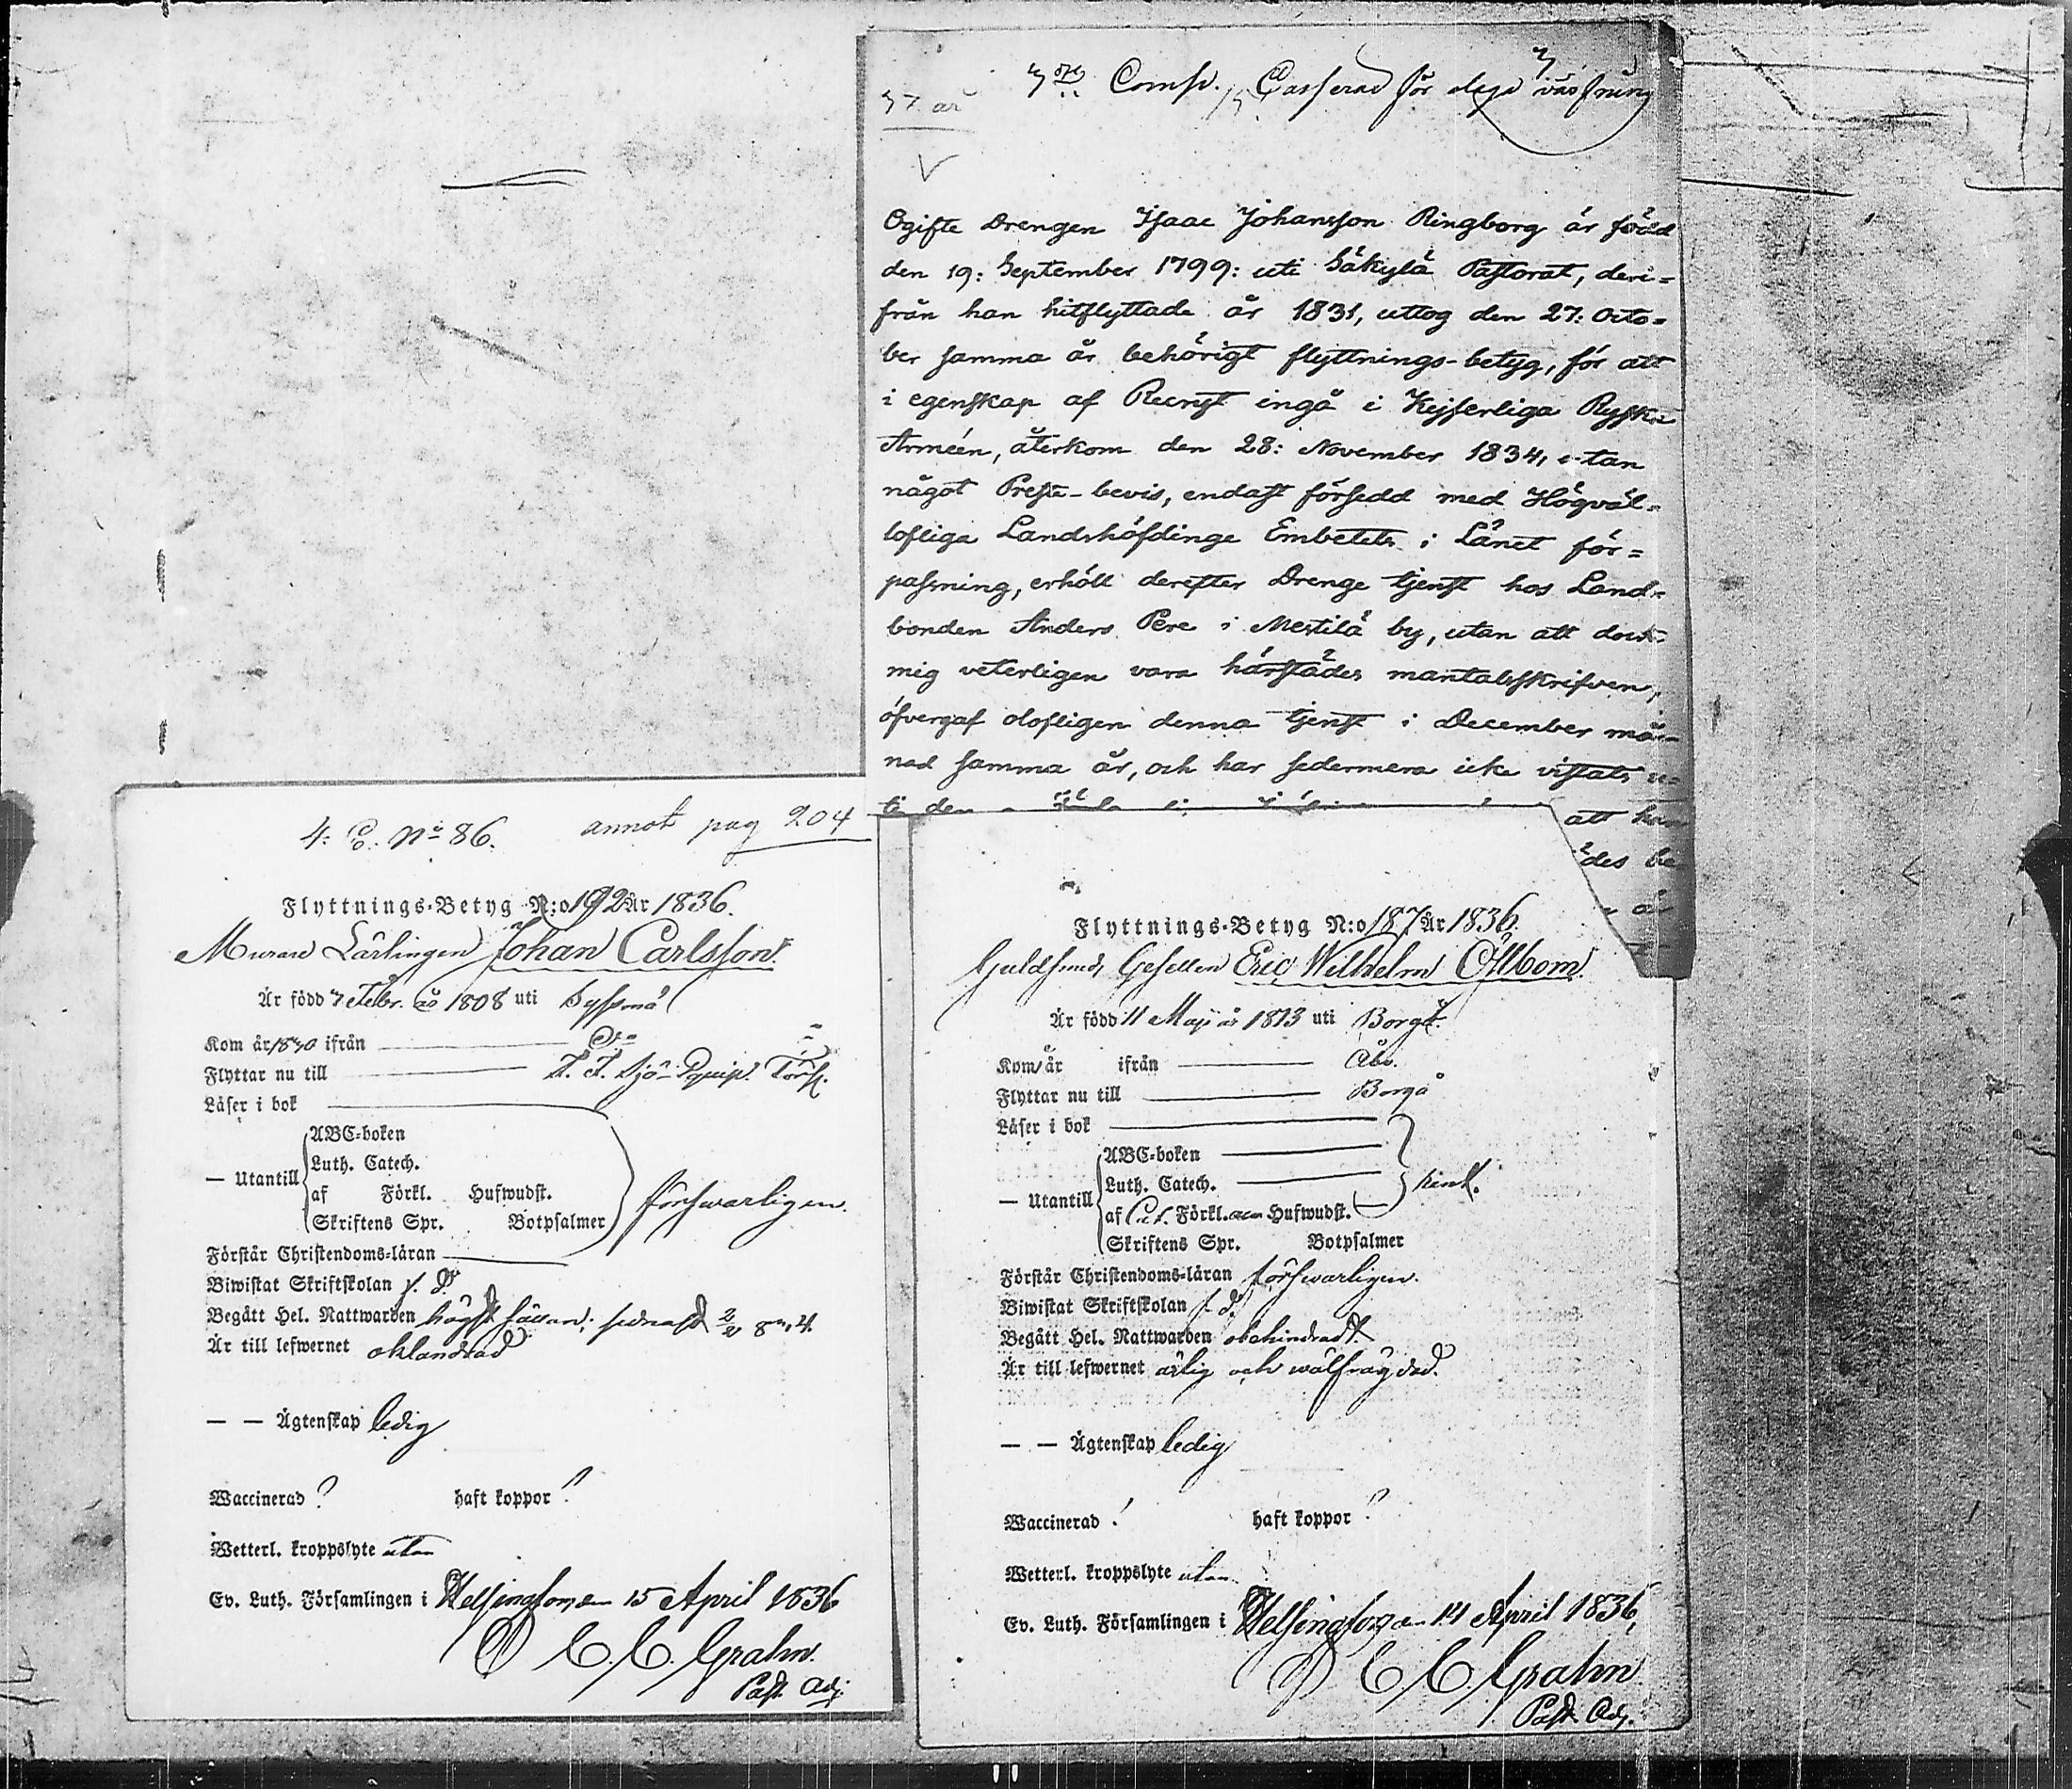 37 år
3die Comp. Casserad för dess
Ogifte Drengen Isaac Johansson Ringborg är född
den 19: September 1799: uti Säkylä Pastorat, deri=
från han hitflyttade år 1831, uttog den 27: Octo=
ber samma år behörigt flyttnings-betyg, för att
i egenskap af Recryt ingå i Kejserliga Ryska
Arméen, återkom den 28: November 1834, utan
något Preste-bevis, endast försedd med Högväl=
lofliga Landshöfdinge Embetets i Länet för=
passning, erhöll derefter Drenge tjenst hos Land=
bonden Anders Pere i Mestilä by, utan att dock
mig veterligen vara härstädes mantalsskrifven,
öfvergaf olofligen denna tjenst i December må=
nad samma år, och har sedermera icke vistats u=
att han
ädes be
4: C. No 86. annot pag 204
Flyttnings-Betyg N:o 192 År 1836.
Murare Lärlingen Johan Carlsson
Är född 7 Febr. år 1808 uti Syssmä
Kom år 1830 ifrån Do
Flyttar nu till Sjö-Equip. Förs.
Läser i bok
— Utantill ABC-boken
Luth. Catech.
af Förkl. Hufwudst.
Skriftens Spr. Botpsalmer
försvarligen.
Förstår Christendoms-läran
Biwistat Skriftskolan f. d.
Begått Hel. Nattwarden högst sällan; sednast
Är till lefwernet oklandrad
— — Ägtenskap ledig
Waccinerad ? haft koppor ?
Wetterl. kroppslyte utan
Ev. Luth. Församlingen i Helsingfors den 15 April 1836
C. C. Grahn.
Past. Adj.
Flyttnings-Betyg N:o 187 År 1836.
Guldsmeds Gesellen Eric Wilhelm Öhlbom.
Är född 11 Maji år 1813 uti Borgå.
Kom år ifrån Åbo.
Flyttar nu till Borgå
Läser i bok
— Utantill ABC-boken
Luth. Catech.
af Förkl. Hufwudst.
Skriftens Spr. Botpsalmer
Förstår Christendoms-läran försvarligen.
Biwistat Skriftskolan f. d.
Begått Hel. Nattwarden obehindradt
Är till lefwernet ärlig och wälfrägdad.
— — Ägtenskap ledig
Waccinerad ? haft koppor ?
Wetterl. kroppslyte utan
Ev. Luth. Församlingen i Helsingfors den 14 April 1836,
C C Grahn
Past. Adj.